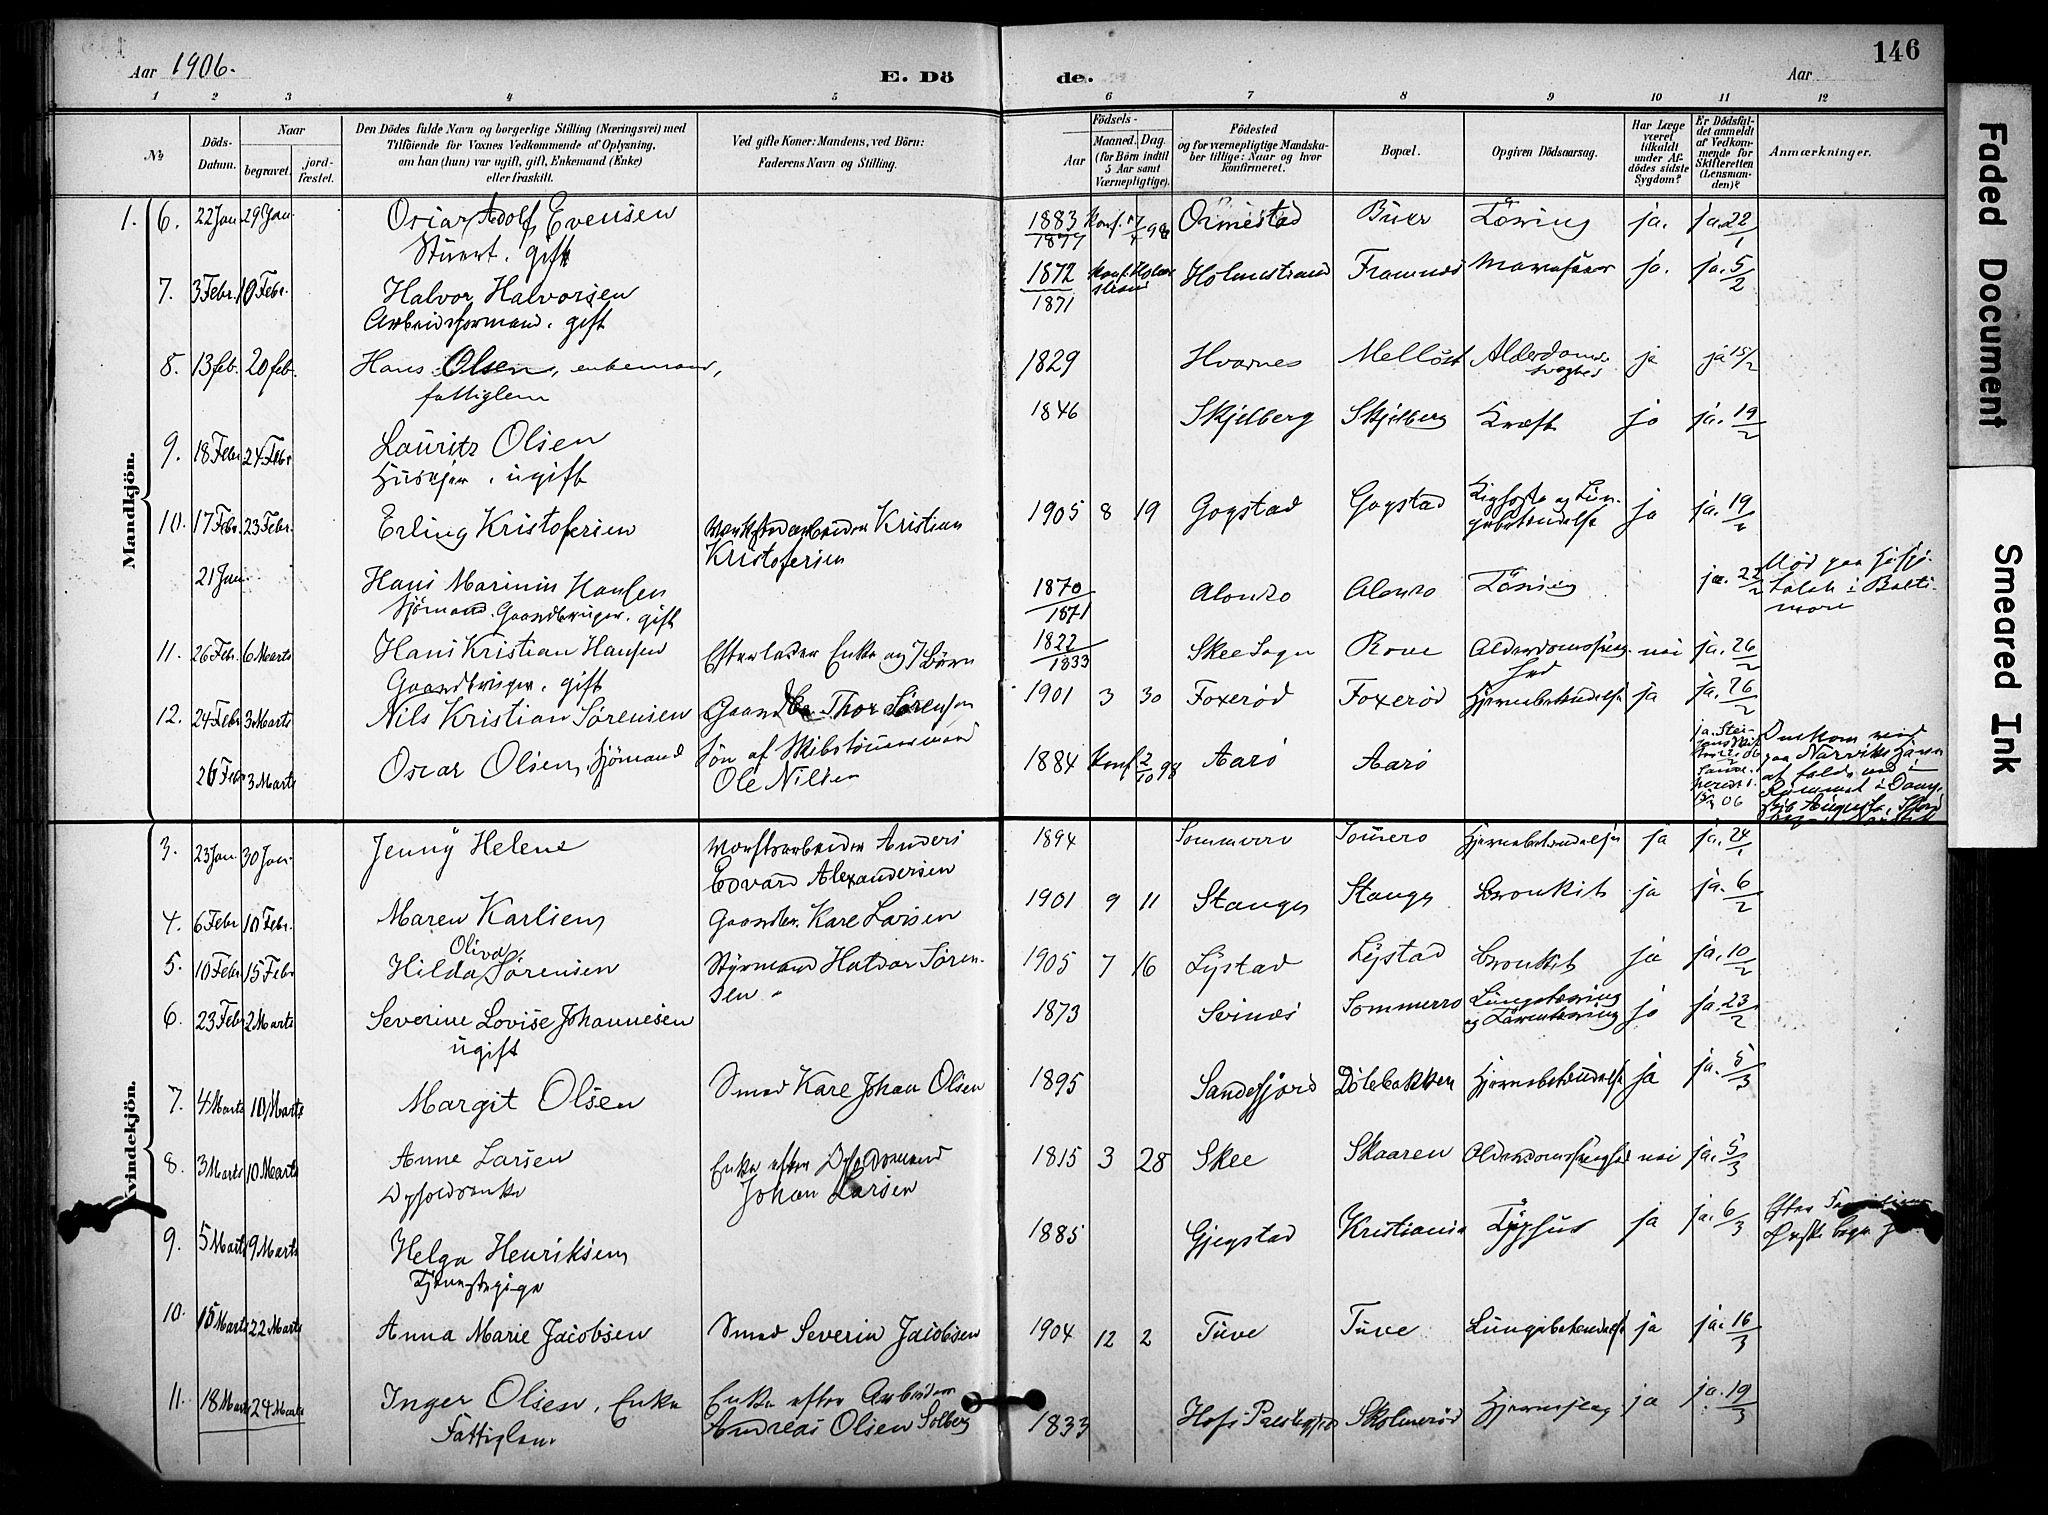 Aar 1906.
E. Döde.
Aar
146
1 2 3 4 5 6 7 8 9 10 11 12
No.
Döds-Datum.
Naar
begravet.
jordfæstet.
Den Dödes fulde Navn og borgerlige Stilling (Næringsvei) med
Tilföiende for Voxnes Vedkommende af Oplysning,
om han (hun) var ugift, gift, Enkemand (Enke)
eller fraskilt.
Ved gifte Koner: Mandens, ved Börn:
Faderens Navn og Stilling.
Födsels-
Aar
Maaned. Dag.
(for Börn indtil
5 Aar samt
Værnepligtige).
Födested
og for værnepligtige Mandskaber tillige: Naar og hvor
konfirmeret.
Bopæl.
Opgiven Dödsaarsag.
Har Læge
været
tilkaldt
under Afdödes sidste
Sygdom?
Er Dödsfaldet anmeldt
af Vedkommende for
Skifteretten
(Lensmanden)?
Anmærkninger.
Mandkjön.
1. 6. 22 Jan 29 Jan. Osiar Adolf Evensen 1883 Konf. Ormestad Tæring ja. ja. 22/1
Stuert. gift 1877
7. 3 Febr. 10 Febr. Halvor Halvorsen 1872 Konf. Holmestrand Framnæs ja. ja. 5/2
Arbeidsformand. gift 1871
8. 13 feb. 20 feb. Hans Olsen, enkemand, 1829 Hvarnes Alderdoms- ja ja 15/2
fattiglem
9. 18 Febr 24 Febr Lauritz Olsen 1846 Skjelberg Skjelberg Kræft ja ja. 19/2
ugift
10. 17 Febr. 23 Febr. Erling Kristofersen Kristian 1905 8 19 Gogstad Gogstad Kighoste og Lungebetændelse ja ja. 19/2
Kristofersen
21 Jan. Hans Marinius Hansen 1870 Tæring ja. 22/2 Död paa
Sjömand. Gaardbruger. gift 1871 i Baltimore
11. 26 Febr. 6 Marts Hans Kristian Hansen Efterlader Enke og 7 Börn 1822 Skee Sogn Rove nei ja. 26/2
Gaardbruger. gift 1833
12. 24 Febr 3 Marts Nils Kristian Sørensen Gaardbr. Thor Sørensen 1901 3 30 Foxerød Foxerød Hjernebetændelse ja ja. 26/2
26 Febr 3 Marts Oscar Olsen, Sjömand Sön af Skibstömmermand 1884 Konf 2/10 98 Aarö Aarö
Ole Nilsen
Kvindekjön.
3. 23 Jan. 30 Jan. Jenny Helene Anders 1894 Sommerro Hjernebetændelse ja ja. 24/1
Edvard Alexandersen
4. 6 Febr 10 Febr. Maren Karliem Gaardbr. Kare Larsen 1901 9 11 Stange Stange Bronkit ja ja. 6/2
Oliva
5. 10 Febr 15 Febr Hilda Sørensen Styrmand Halvor Sørensen 1905 7 16 Lystad Lystad Bronkit ja ja. 10/2
6. 23 Febr 2 Marts Severine Lovise Johannesen 1873 Svinæs Sommerro Lungetæring ja ja. 23/2
ugift og Tarmtæring
7. 4 Marts 10 Marts Margit Olsen Smed Kare Johan Olsen 1895 Sandefjord Dölebakken Hjernebetændelse ja ja. 5/3
8. 3 Marts 10 Marts Anne Larsen Enke efter 1815 3 28 Skee Skaaren Alderdomssvaghed nei ja. 5/3
Johan Larsen
9. 5 Marts 9 Marts Helga Henriksen 1885 Gjegstad Kristiania Tyfus ja ja. 6/3 Efter
Tjenestepige
10. 15 Marts 22 Marts Anna Marie Jacobsen Smed Severin Jacobsen 1904 12 2 Tuve Tuve Lungebetændelse ja ja. 16/3
11. 18 Marts 24 Marts Inger Olsen. Enke Enke efter Arbeider 1833 Skolmerød ja ja. 19/3
Fattiglem. Andreas Olsen Solberg
Faded Document
Smeared Ink